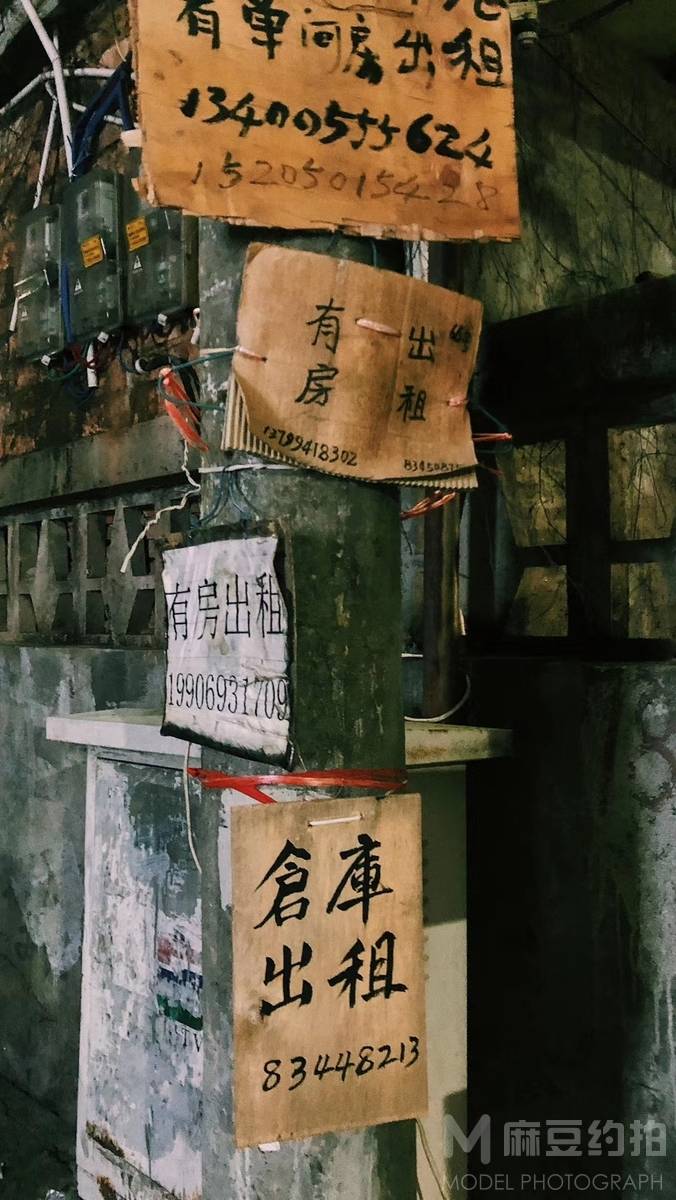 有单间房出租
13400555624
15205015428
有房
出租
13799418302
有房出租
19906931709
倉庫
出租
83448213
麻豆约拍
MODEL PHOTOGRAPH